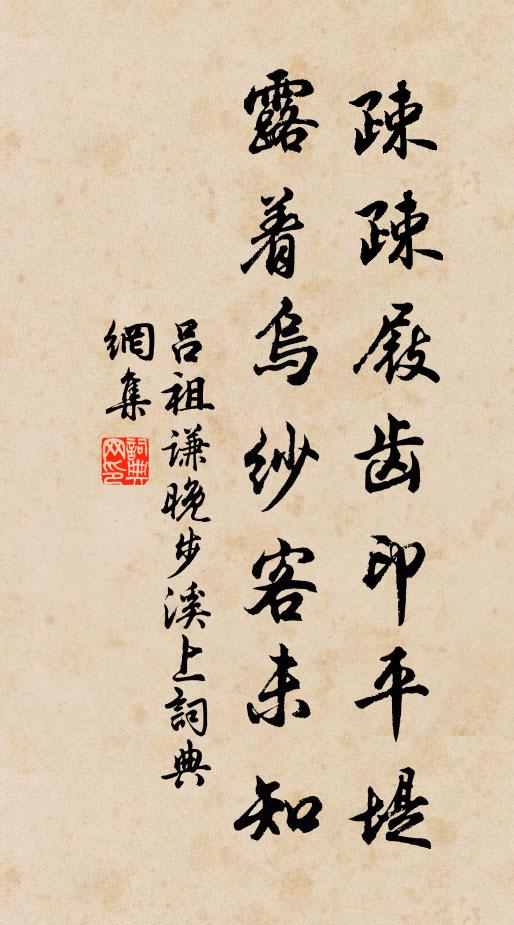 疎疎屐齒印平堤
露着烏紗客未知
呂祖謙晚步溪上詞典
網集
詞典网印